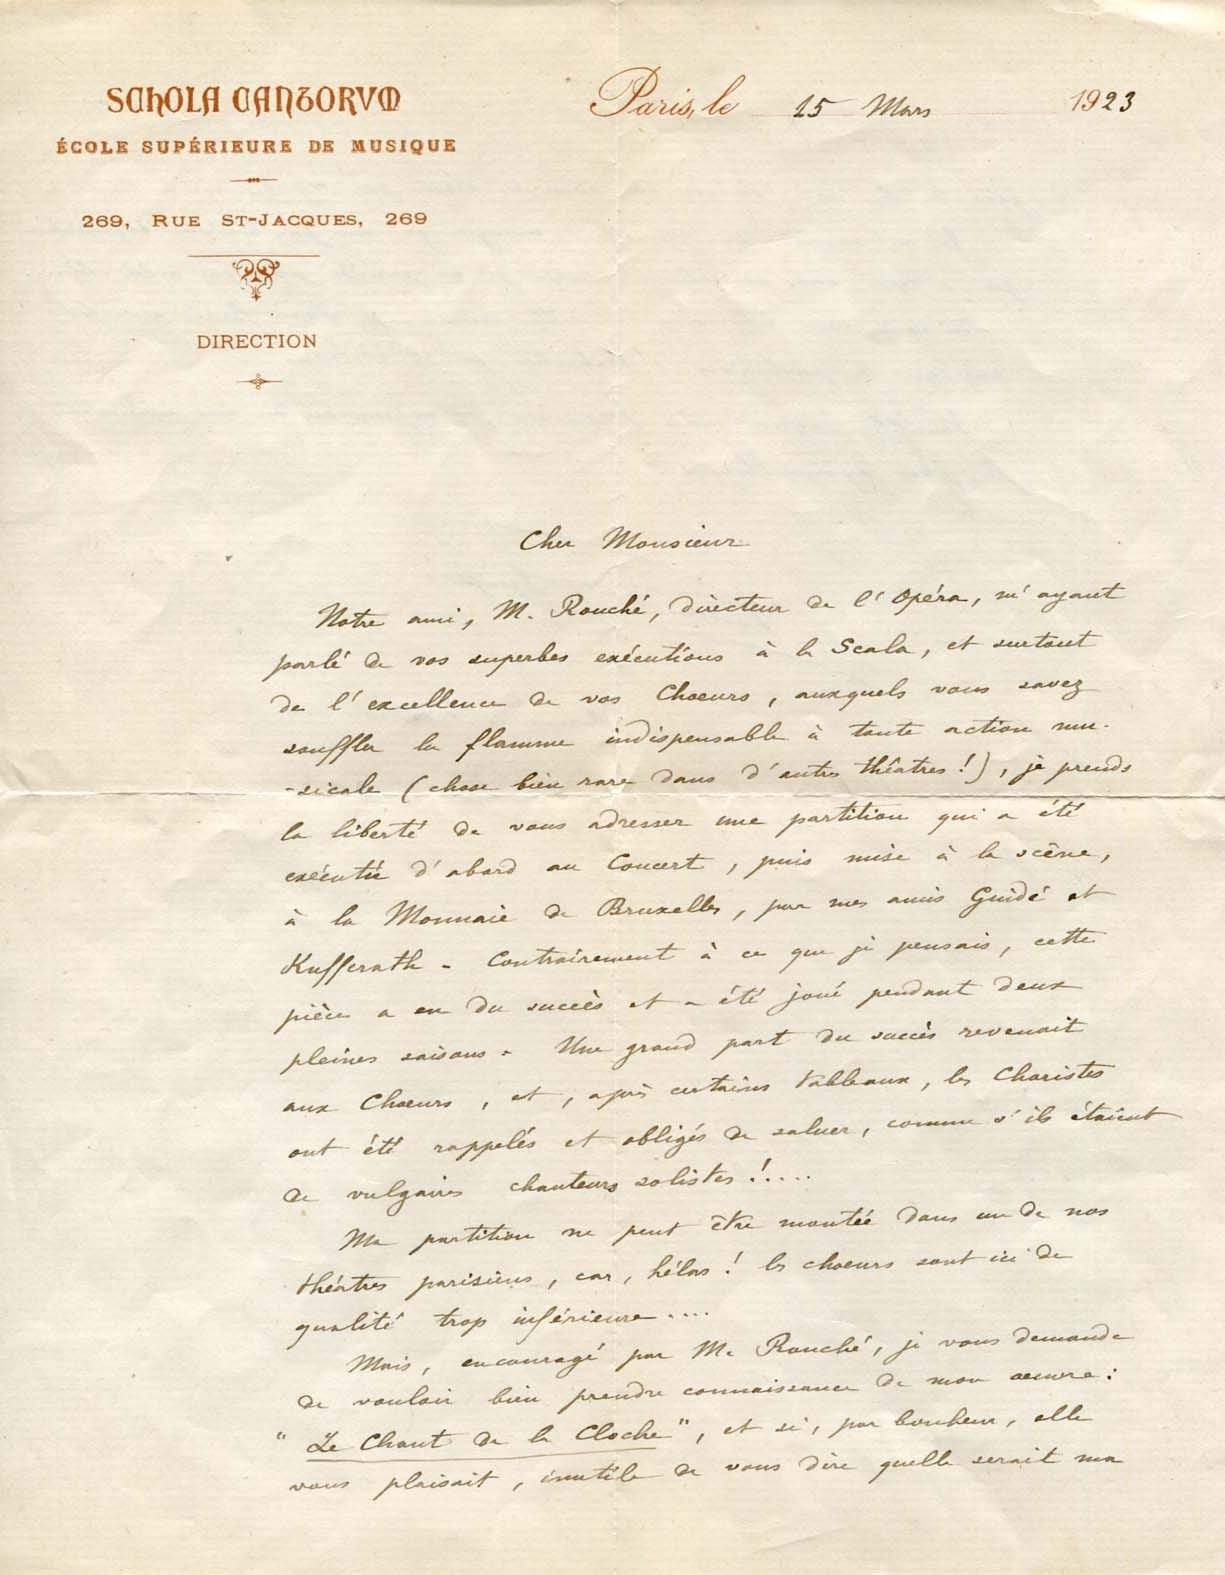 SCHOLA CANTORVM
ÉCOLE SUPÉRIEURE DE MUSIQUE
269, RUE ST-JACQUES, 269
DIRECTION
Paris, le 15 Mars 1923
Cher Monsieur
Notre ami, M. Rouché, directeur de l'Opéra, m'ayant
parlé de vos superbes exécutions à la Scala, et surtout
de l'excellence de vos Choeurs, auxquels vous savez
souffler la flamme indispensable à toute action mu-
-sicale (chose bien rare dans d'autres théâtres!), je prends
la liberté de vous adresser une partition qui a été
exécutée d'abord au Concert, puis mise à la scène,
à la Monnaie de Bruxelles, par mes amis Guidé et
Kufferath - Contrairement à ce que je pensais, cette
pièce a eu du succès et a été joué pendant deux
pleines saisons - Une grand part du succès revenait
aux Choeurs, et, après certains tableaux, les Choristes
ont été rappelés et obligés de saluer, comme s'ils étaient
de vulgaires chanteurs solistes!....
Ma partition ne peut être montée dans un de nos
théatres parisiens, car, hélas! les choeurs sont ici de
qualité trop inférieure....
Mais, encouragé par M. Rouché, je vous demande
de vouloir bien prendre connaissance de mon oeuvre:
"Le Chant de la Cloche", et si, par bonheur, elle
vous plaisait, inutile de vous dire quelle serait ma